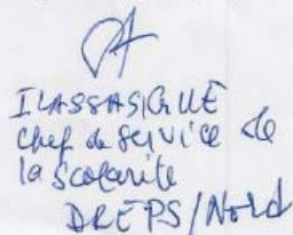 ILASSASIGUE
chef de service de
la scolarité
DREPS/Nord